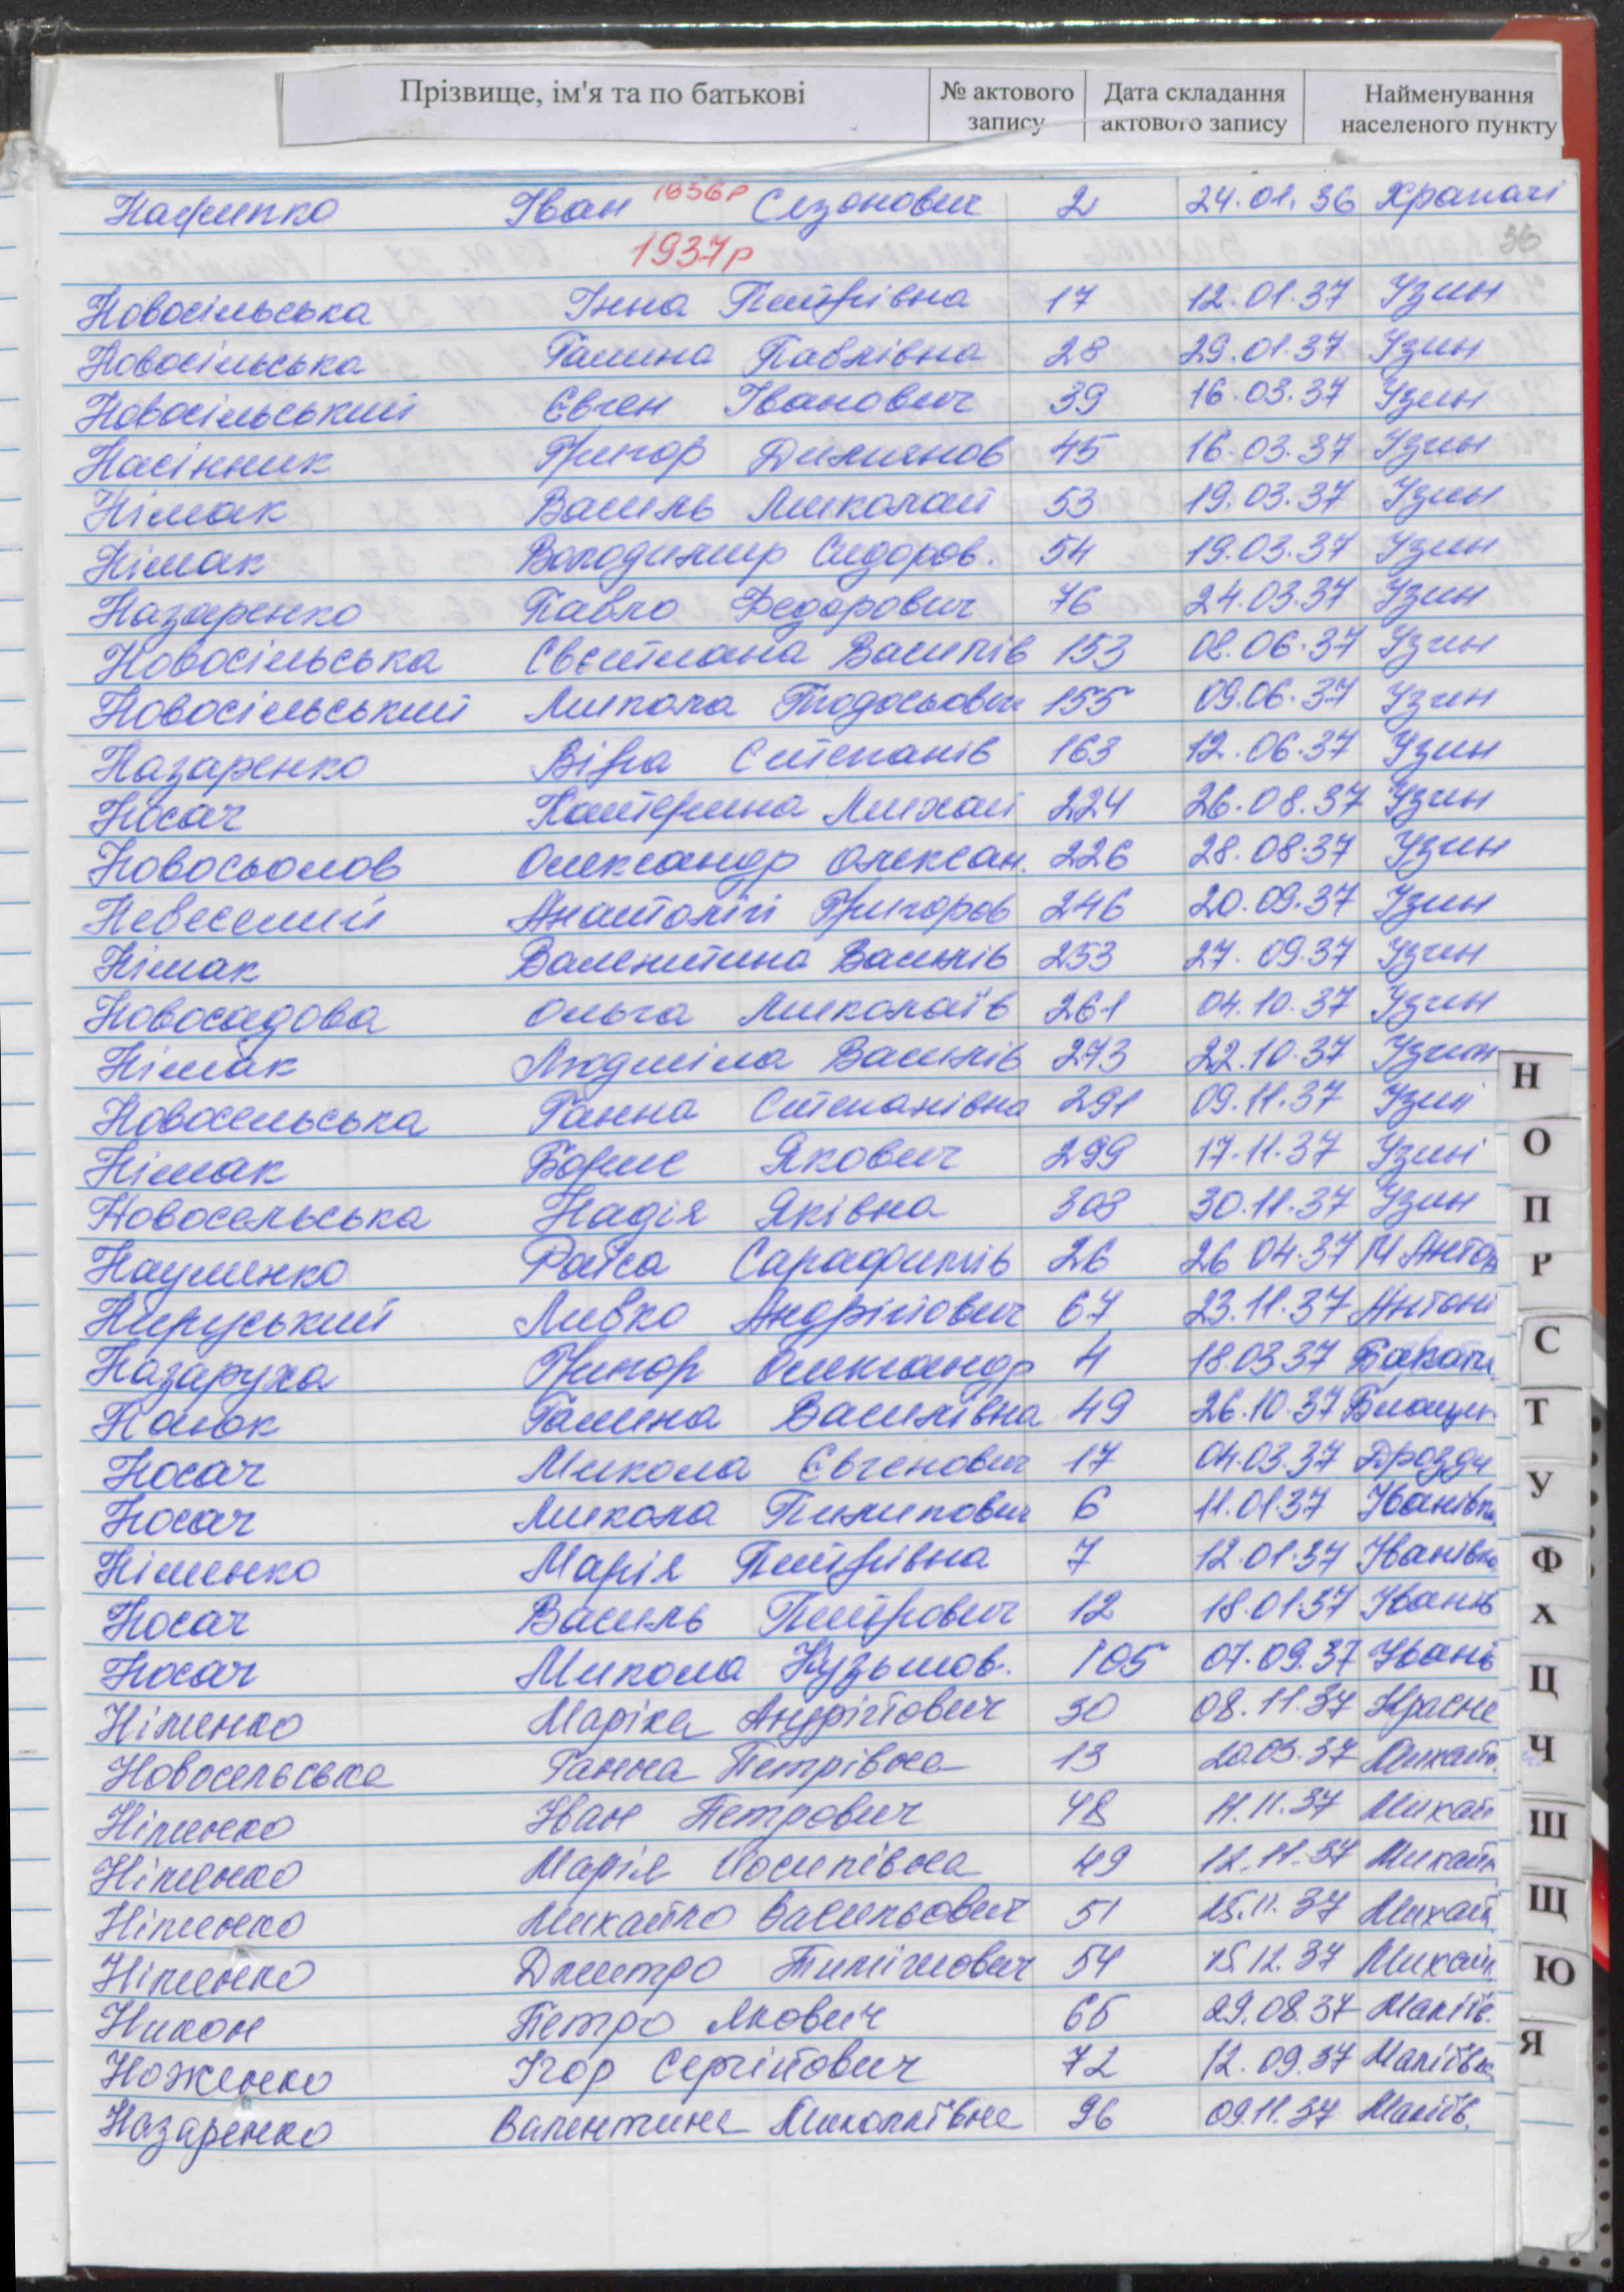 Прізвище, ім'я та по батькові № актового запису Дата складання актового запису Найменування населеного пункту
1936р
Іван Сазонович 2 24.01.36 Храпачі
36
1937р
Новосільська Інна Петрівна 17 12.01.37 Узин
Новосільська Галина Павлівна 28 29.01.37 Узин
Новосільський Євген Іванович 39 16.03.37 Узин
Насінник Григор Демянов 45 16.03.37 Узин
Німак Василь Миколай 53 19.03.37 Узин
Німак Володимир Сидоров. 54 19.03.37 Узин
Назаренко Павло Федорович 76 24.03.37 Узин
Новосільська Свєтлана Василів 153 08.06.37 Узин
Новосільський Микола Тодосьович 155 09.06.37 Узин
Назаренко Віра Степанів 163 12.06.37 Узин
Носач Катерина Михай 224 26.08.37 Узин
Новосьолов Олександр Олексан. 226 28.08.37 Узин
Невеселий Анатолій Григоров 246 20.09.37 Узин
Німак Валентина Василів 253 27.09.37 Узин
Новосадова Ольга Миколаїв 261 04.10.37 Узин
Німак Людміла Василів 273 22.10.37 Узин
Новосельська Ганна Степанівна 291 09.11.37 Узин
Німак Борис Якович 299 17.11.37 Узин
Новосельська Надія Яківна 303 30.11.37 Узин
Науменко Раїса 26 26 04.37 М Антон
Левко Андрійович 67 23.11.37 Антоні
Назаруха Григор Олександр 4 18.03 37
Галина Василівна 49 26.10.37
Носач Микола Євгенович 17 04.03.37 Дрозди
Носач Микола Пилипович 6 11.01.37 Іванівка
Німенко Марія Петрівна 7 12.01.37 Іванівка
Носач Василь Петрович 12 18.01 37 Іванів
Носач Микола Кузьмов. 105 07.09.37 Івані
Німенко Андрійович 30 08.11.37 Красне
Новосельська Ганна Петрівна 13 20.03.37 Михайл
Німенко Іван Петрович 48 11.11.37 Михай
Німенко Марія Йосипівна 49 12.11.37 Михайл
Німенко Михайло Васильович 51 25.11.37 Михай
Німенко Дмитро Тимішович 54 15.12.37 Михайл
Никон Петро Якович 65 29.08.37 Маліїв.
Ноженко Ігор Сергійович 72 12.09.37 Маліївка
Назаренко Валентина Миколаївна 96 09.11.37 Маліїв.
Н
О
П
Р
С
Т
У
Ф
Х
Ц
Ч
Ш
Щ
Ю
Я